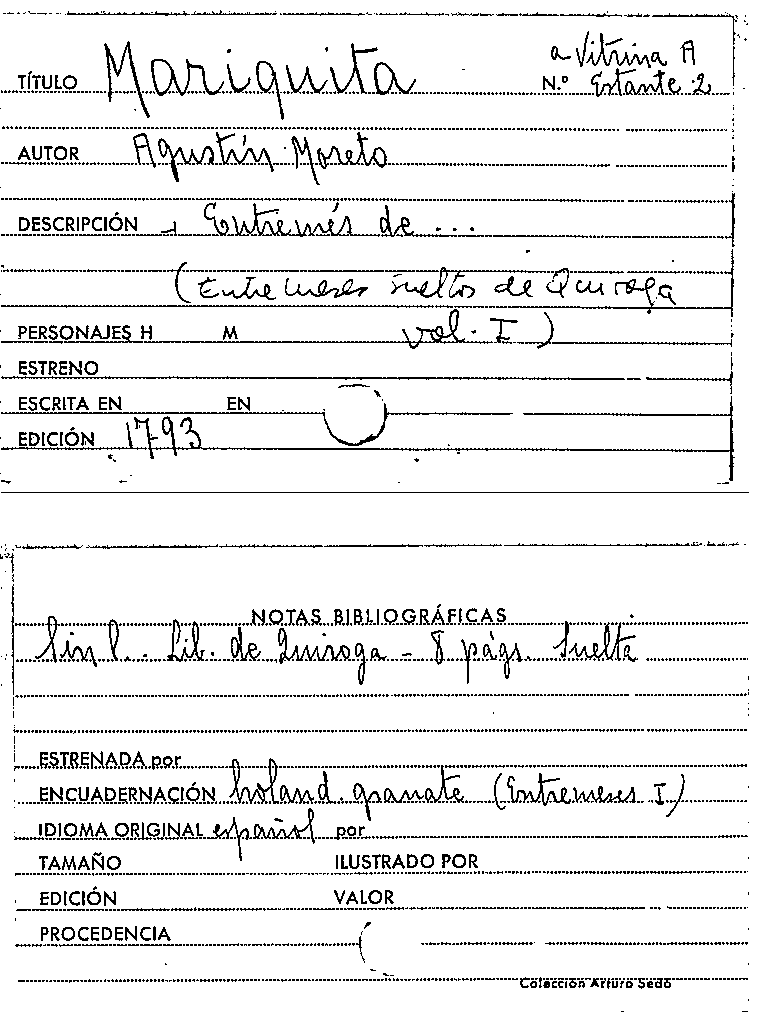 a Vitrina A
TÍTULO Mariquita N.º Estante 2
AUTOR Agustín Moreto
DESCRIPCIÓN Entremés de ...
(Entremeses sueltos de Quiroga
PERSONAJES H M vol. I)
ESTRENO
ESCRITA EN EN
EDICIÓN 1793
NOTAS BIBLIOGRÁFICAS
Sin l. - Lib. de Quiroga - 8 págs. Suelta
ESTRENADA por
ENCUADERNACIÓN holand. granate (Entremeses I)
IDIOMA ORIGINAL español por
TAMAÑO ILUSTRADO POR
EDICIÓN VALOR
PROCEDENCIA
Colección Arturo Sedó